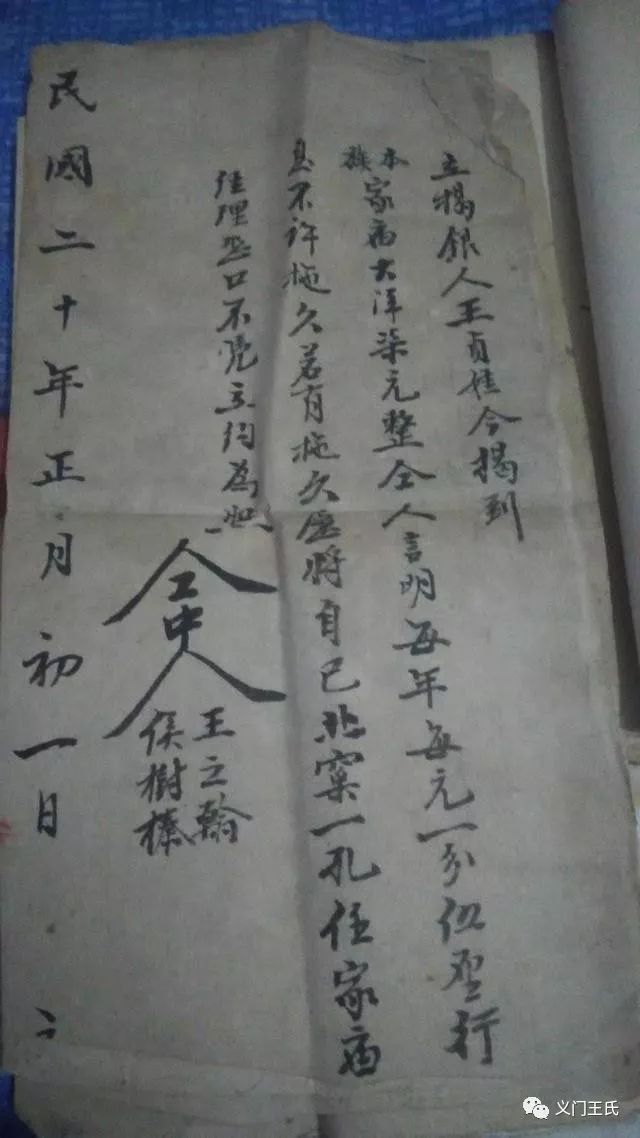 立揭銀人王貞桂今揭到
本族家庙大洋柒元整仝人言明每年每元一分伍厘行
息不许拖久若有拖久愿将自己北窯一孔任家庙
经理恐口不凭立约為照
仝中人
王之翰
侯樹榛
民國二十年正月初一日
义门王氏